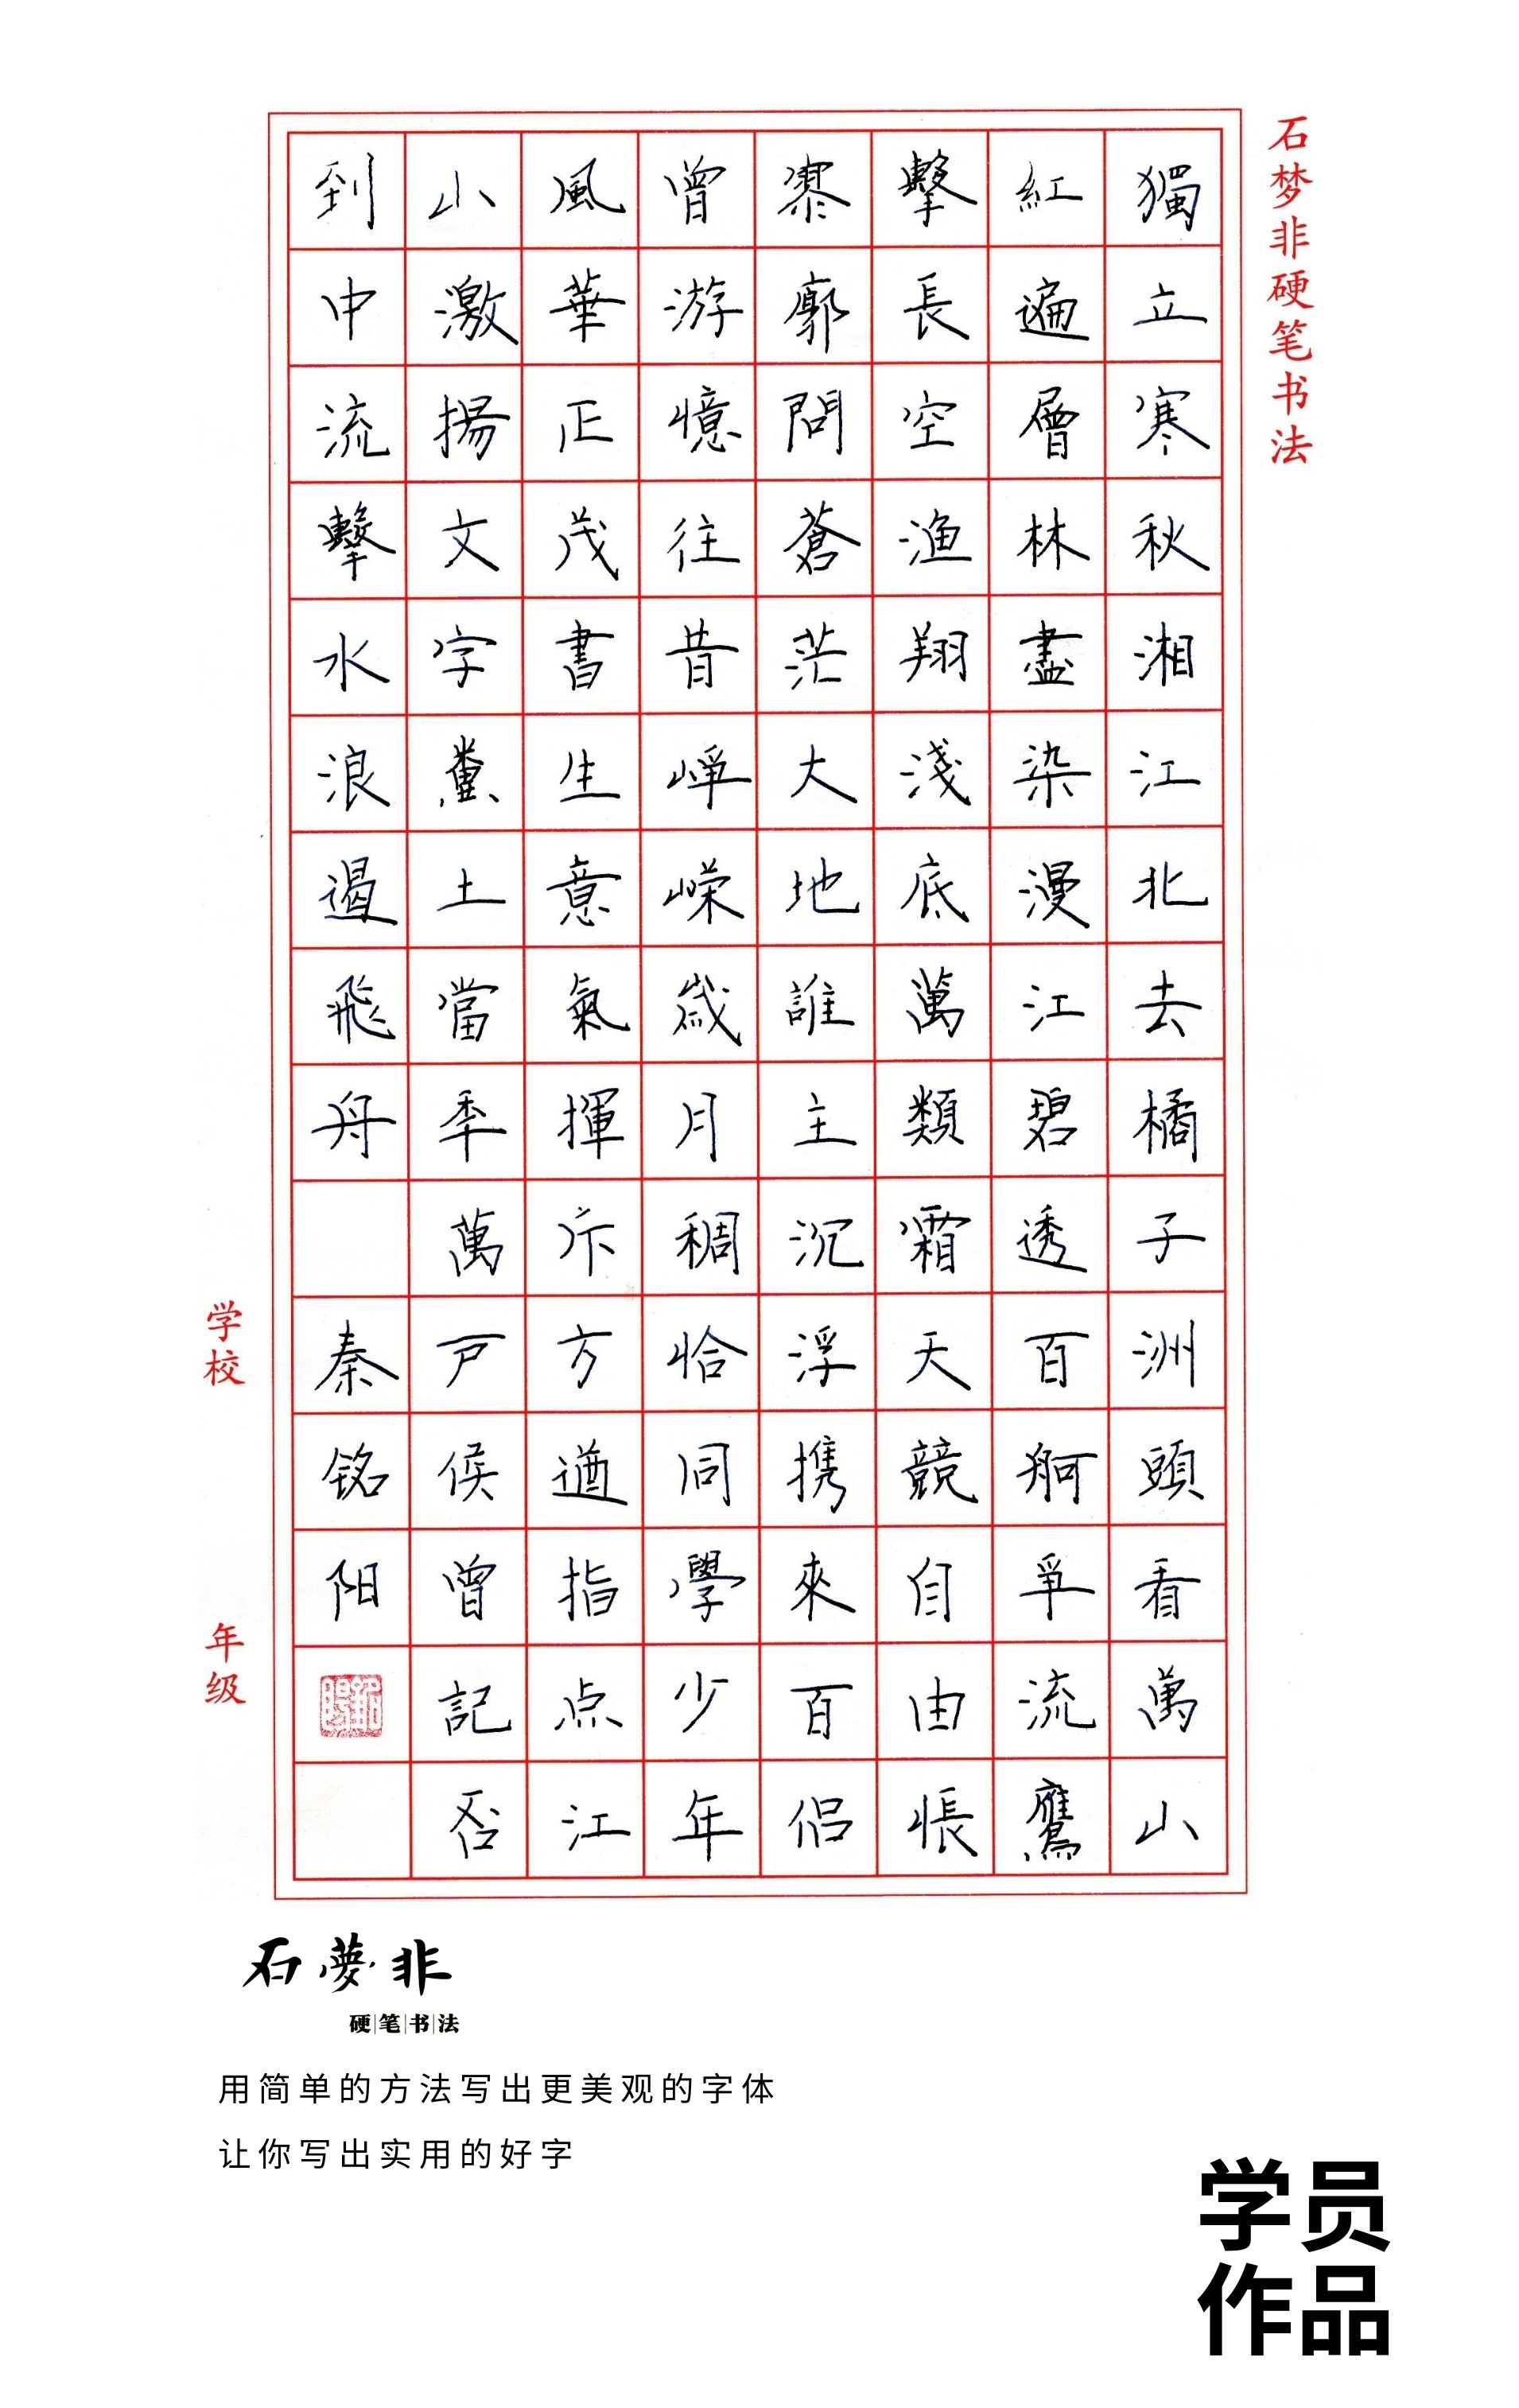 石梦非硬笔书法
獨立寒秋湘江北去橘子洲頭看萬山
紅遍層林盡染漫江碧透百舸爭流鷹
擊長空渔翔淺底萬類霜天競自由悵
寥廓問蒼茫大地誰主沉浮携來百侣
曾游憶往昔崢嵘歲月稠恰同學少年
風華正茂書生意氣揮斥方遒指点江
山激揚文字糞土當秊萬戶侯曾記否
到中流擊水浪遏飛舟 秦铭阳
学校
年级
石夢非
硬笔书法
用简单的方法写出更美观的字体
让你写出实用的好字
学员
作品